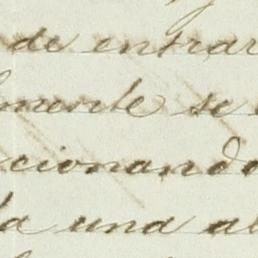 de entrar
mente se
cionando
da una al